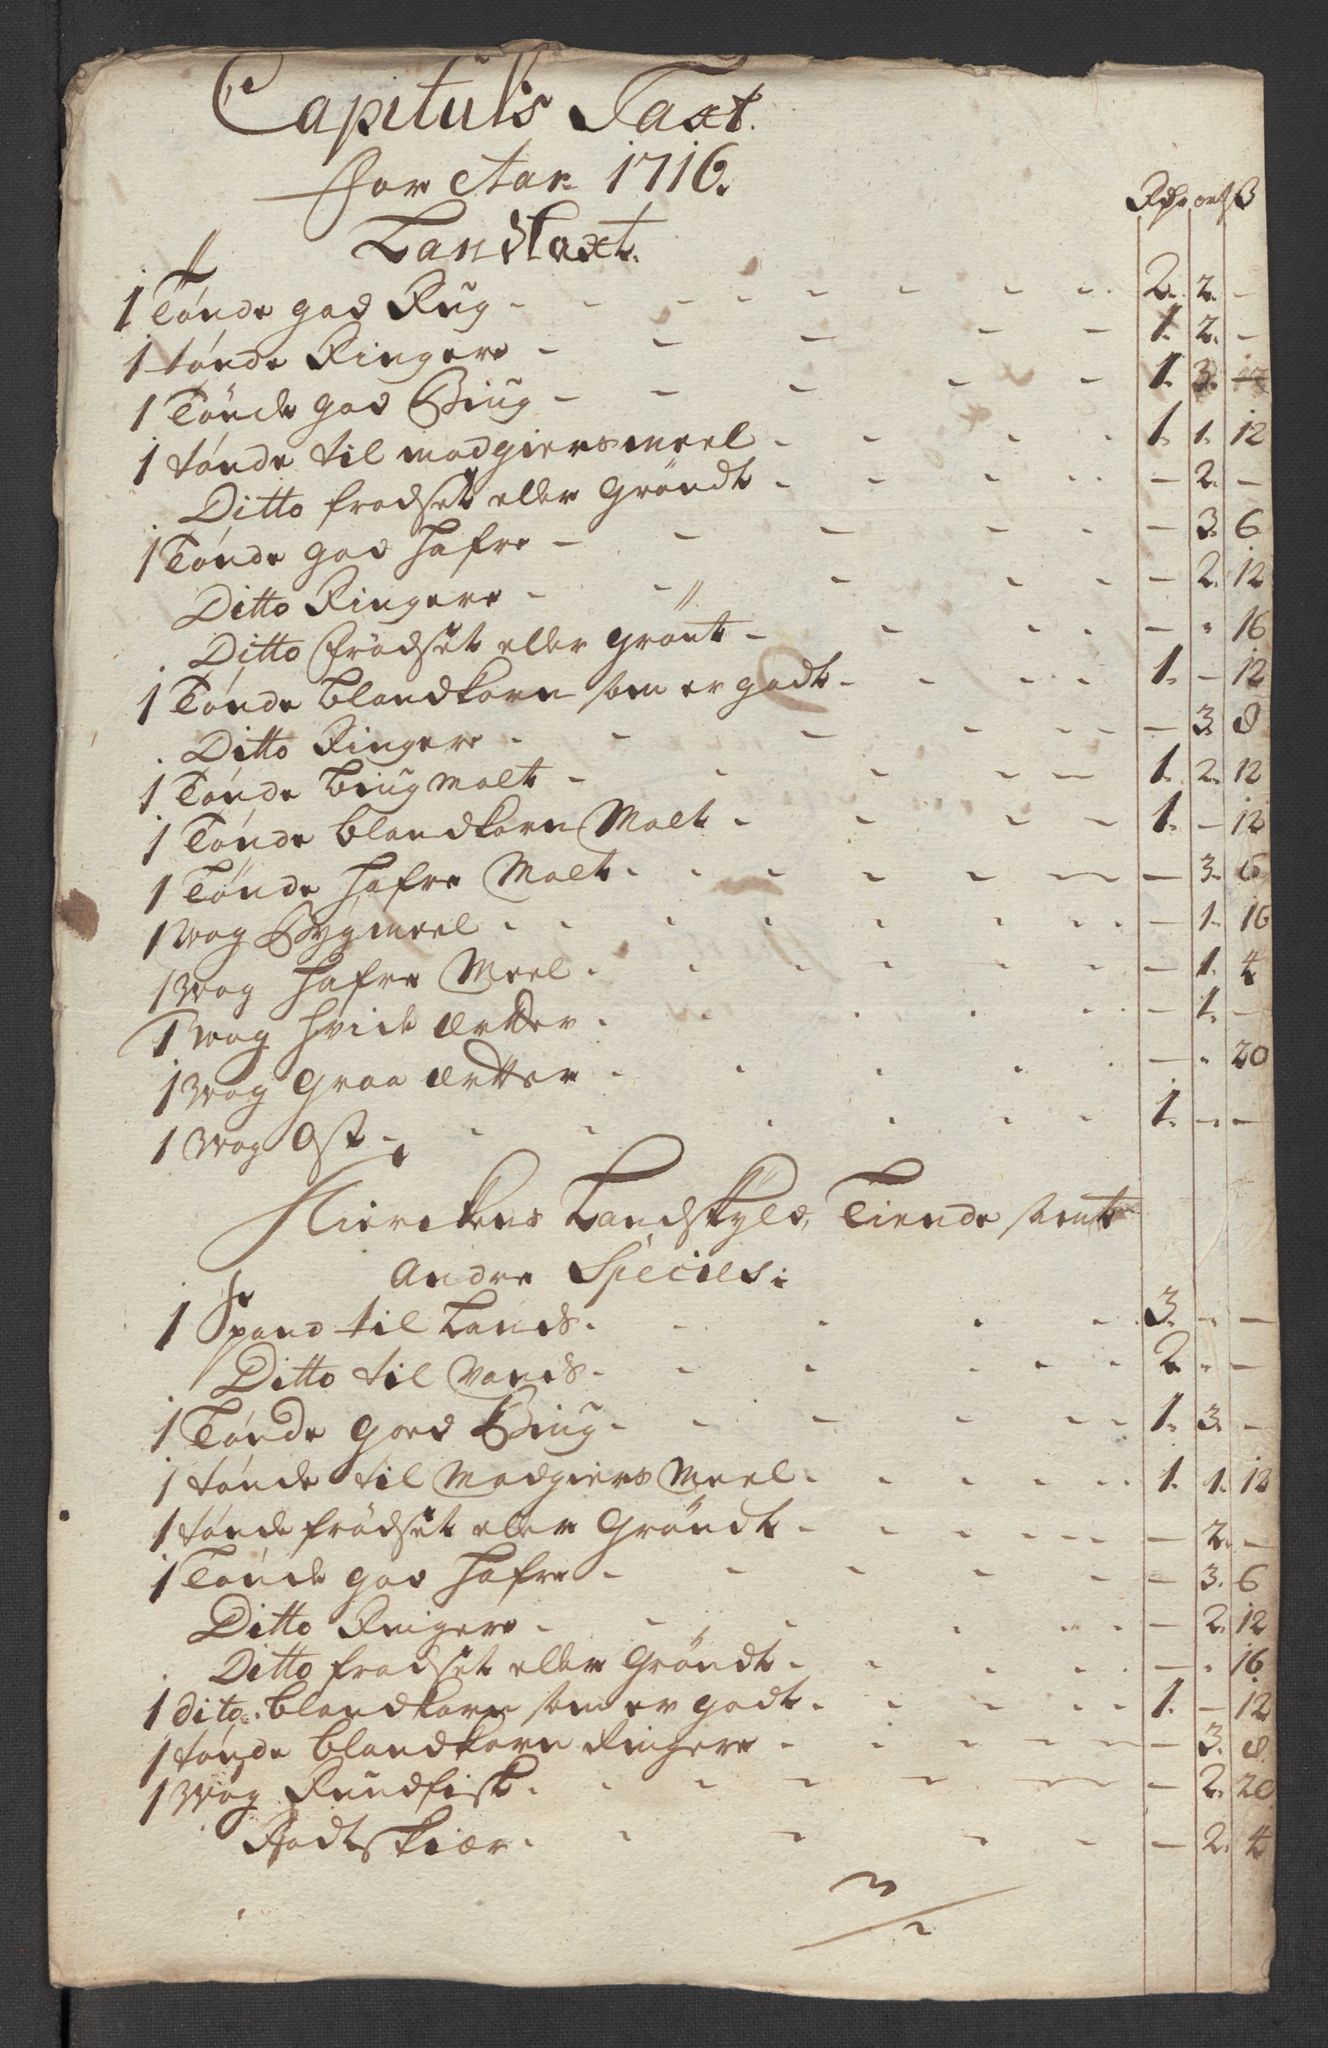 Capituls Taxt.
for Aar 1716.
Rdr ort ß
Landtaxt.
1 Tónde god Rug - - - - - - - - 2. 2. -
1 tónde Ringere - - - - - 1. 2. -
1 Tönde god Biug - - - - - 1. 3.
1 tónde til madgiersmeel - - - - 1. 1. 12
Ditto frodset eller Gröndt - - - - - 2. -
1 Tónde god Hafre - - - - - - 3. 6
Ditto Ringere - - - - - - 2. 12
Ditto frödset eller grönt - - - - - " 16
1 Tónde blandkorn som er godt - - - - 1. - 12
Ditto Ringere - - - - - - - 3. 8
1 Tónde biugmalt - - - - - 1. 2. 12
1 Tónde blandkorn Malt - - - - 1. - 12
1 Tónde Hafre Malt - - - - - - - - 3. 6
1 Wog Bÿgmeel - - - - - - - - 1. 16
1 Wog Hafre Meel - - - - - - - 1. 4
1 Wog hvide ærtter - - - - - - 1. -
1 Wog Graa ærtter - - - - - - " 20
1 Wog Ost - - - - - - 1. - -
Kierckens Landskÿld, Tiende samt
Andre Species:
1 Spand til Lands - - - - - 3. - -
Ditto til Vands - - - - - - 2 - -
1 Tónde goed Biug - - - - - - 1. 3. -
1 tónde til Madgiers Meel - - - - - 1. 1. 12
1 tónde frödset eller Gröndt - - - - - - 2. -
1 Tónde god Hafre - - - - - - 3. 6
Ditto Ringere - - - - - - - 2. 12
Ditto frodset eller Gröndt - - - - - - " 16
1 dito blandkorn som er godt - - - - - 1. - 12
1 tónde blandkorn Ringere - - - - - - 3. 8
1 Wog Rundfisk - - - - - - - 2. 20
Rodtskiær - - - - - - 2. 4